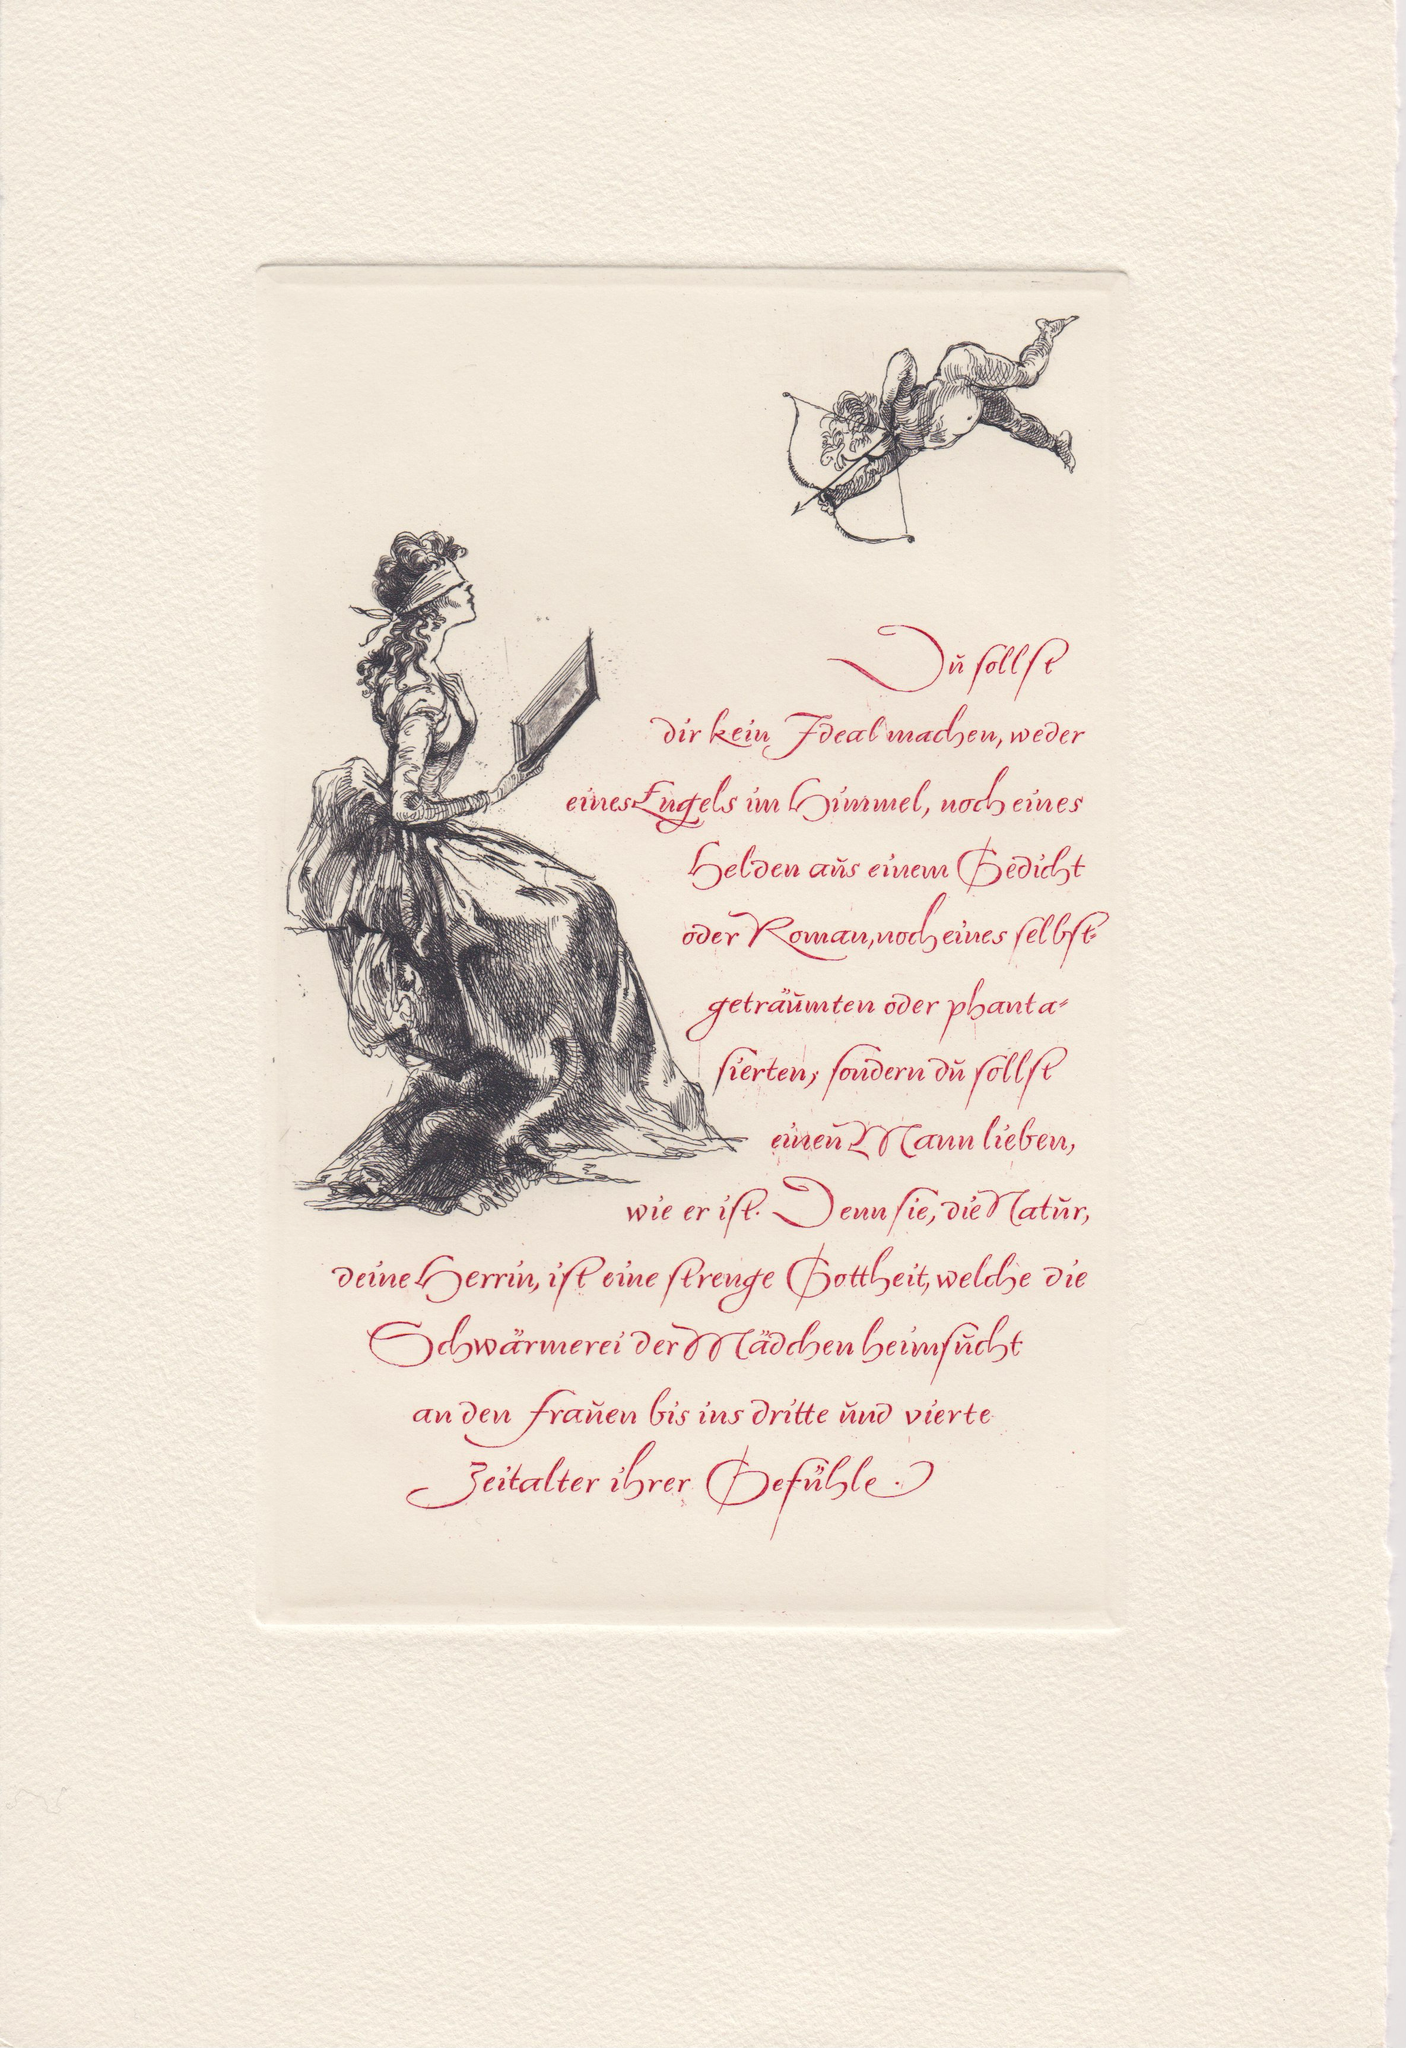 Du sollst
dir kein Ideal machen, weder
eines Engels im Himmel, noch eines
Helden aus einem Gedicht
oder Roman, noch eines selbst-
geträumten oder phanta-
sierten; sondern du sollst
einen Mann lieben,
wie er ist. Denn sie, die Natur,
deine Herrin, ist eine strenge Gottheit, welche die
Schwärmerei der Mädchen heimsucht
an den Frauen bis ins dritte und vierte
Zeitalter ihrer Gefühle.